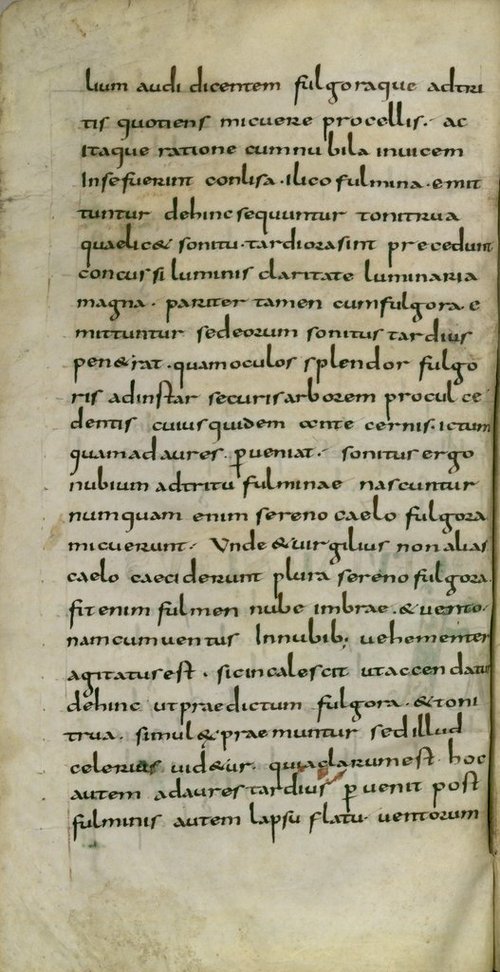 lium audi dicentem fulgoraque adtri
tis quotiens micuere procellis. ac
itaque ratione cumnubila inuicem
Insefuerint conlisa. ilico fulmina. emit
tuntur dehincsequuntur tonitrua
quaelic& sonitu. tardiorasint precedunt
concursiluminis claritate luminaria
magna. pariter tamen cumfulgora. e
mittuntur sedeorum sonitus tardius
pen&rat. quamoculos splendor fulgo
ris adinstar securisarborem procul ce
dentis cuiusquidem ante cernis. ictum
quamadaures. ꝑueniat. sonitusergo
nubium adtritu fulminae nascuntur
numquam enim sereno caelo fulgora
micuerunt. Vnde &uirgilius nonalias
caelo caeciderunt plura serenofulgora.
fitenim fulmen nube imbrae. &uento.
namcumuentus Innubib; uehementer
agitatusest. sicincalescit utaccendatur
dehinc utpraedictum fulgora. &toni
trua. simul&praemuntur sedillud
celerius uid&ur. quiaclarumest hoc
autem adaurestardius ꝑuenit post
fulminis autem lapsu flatu uentorum